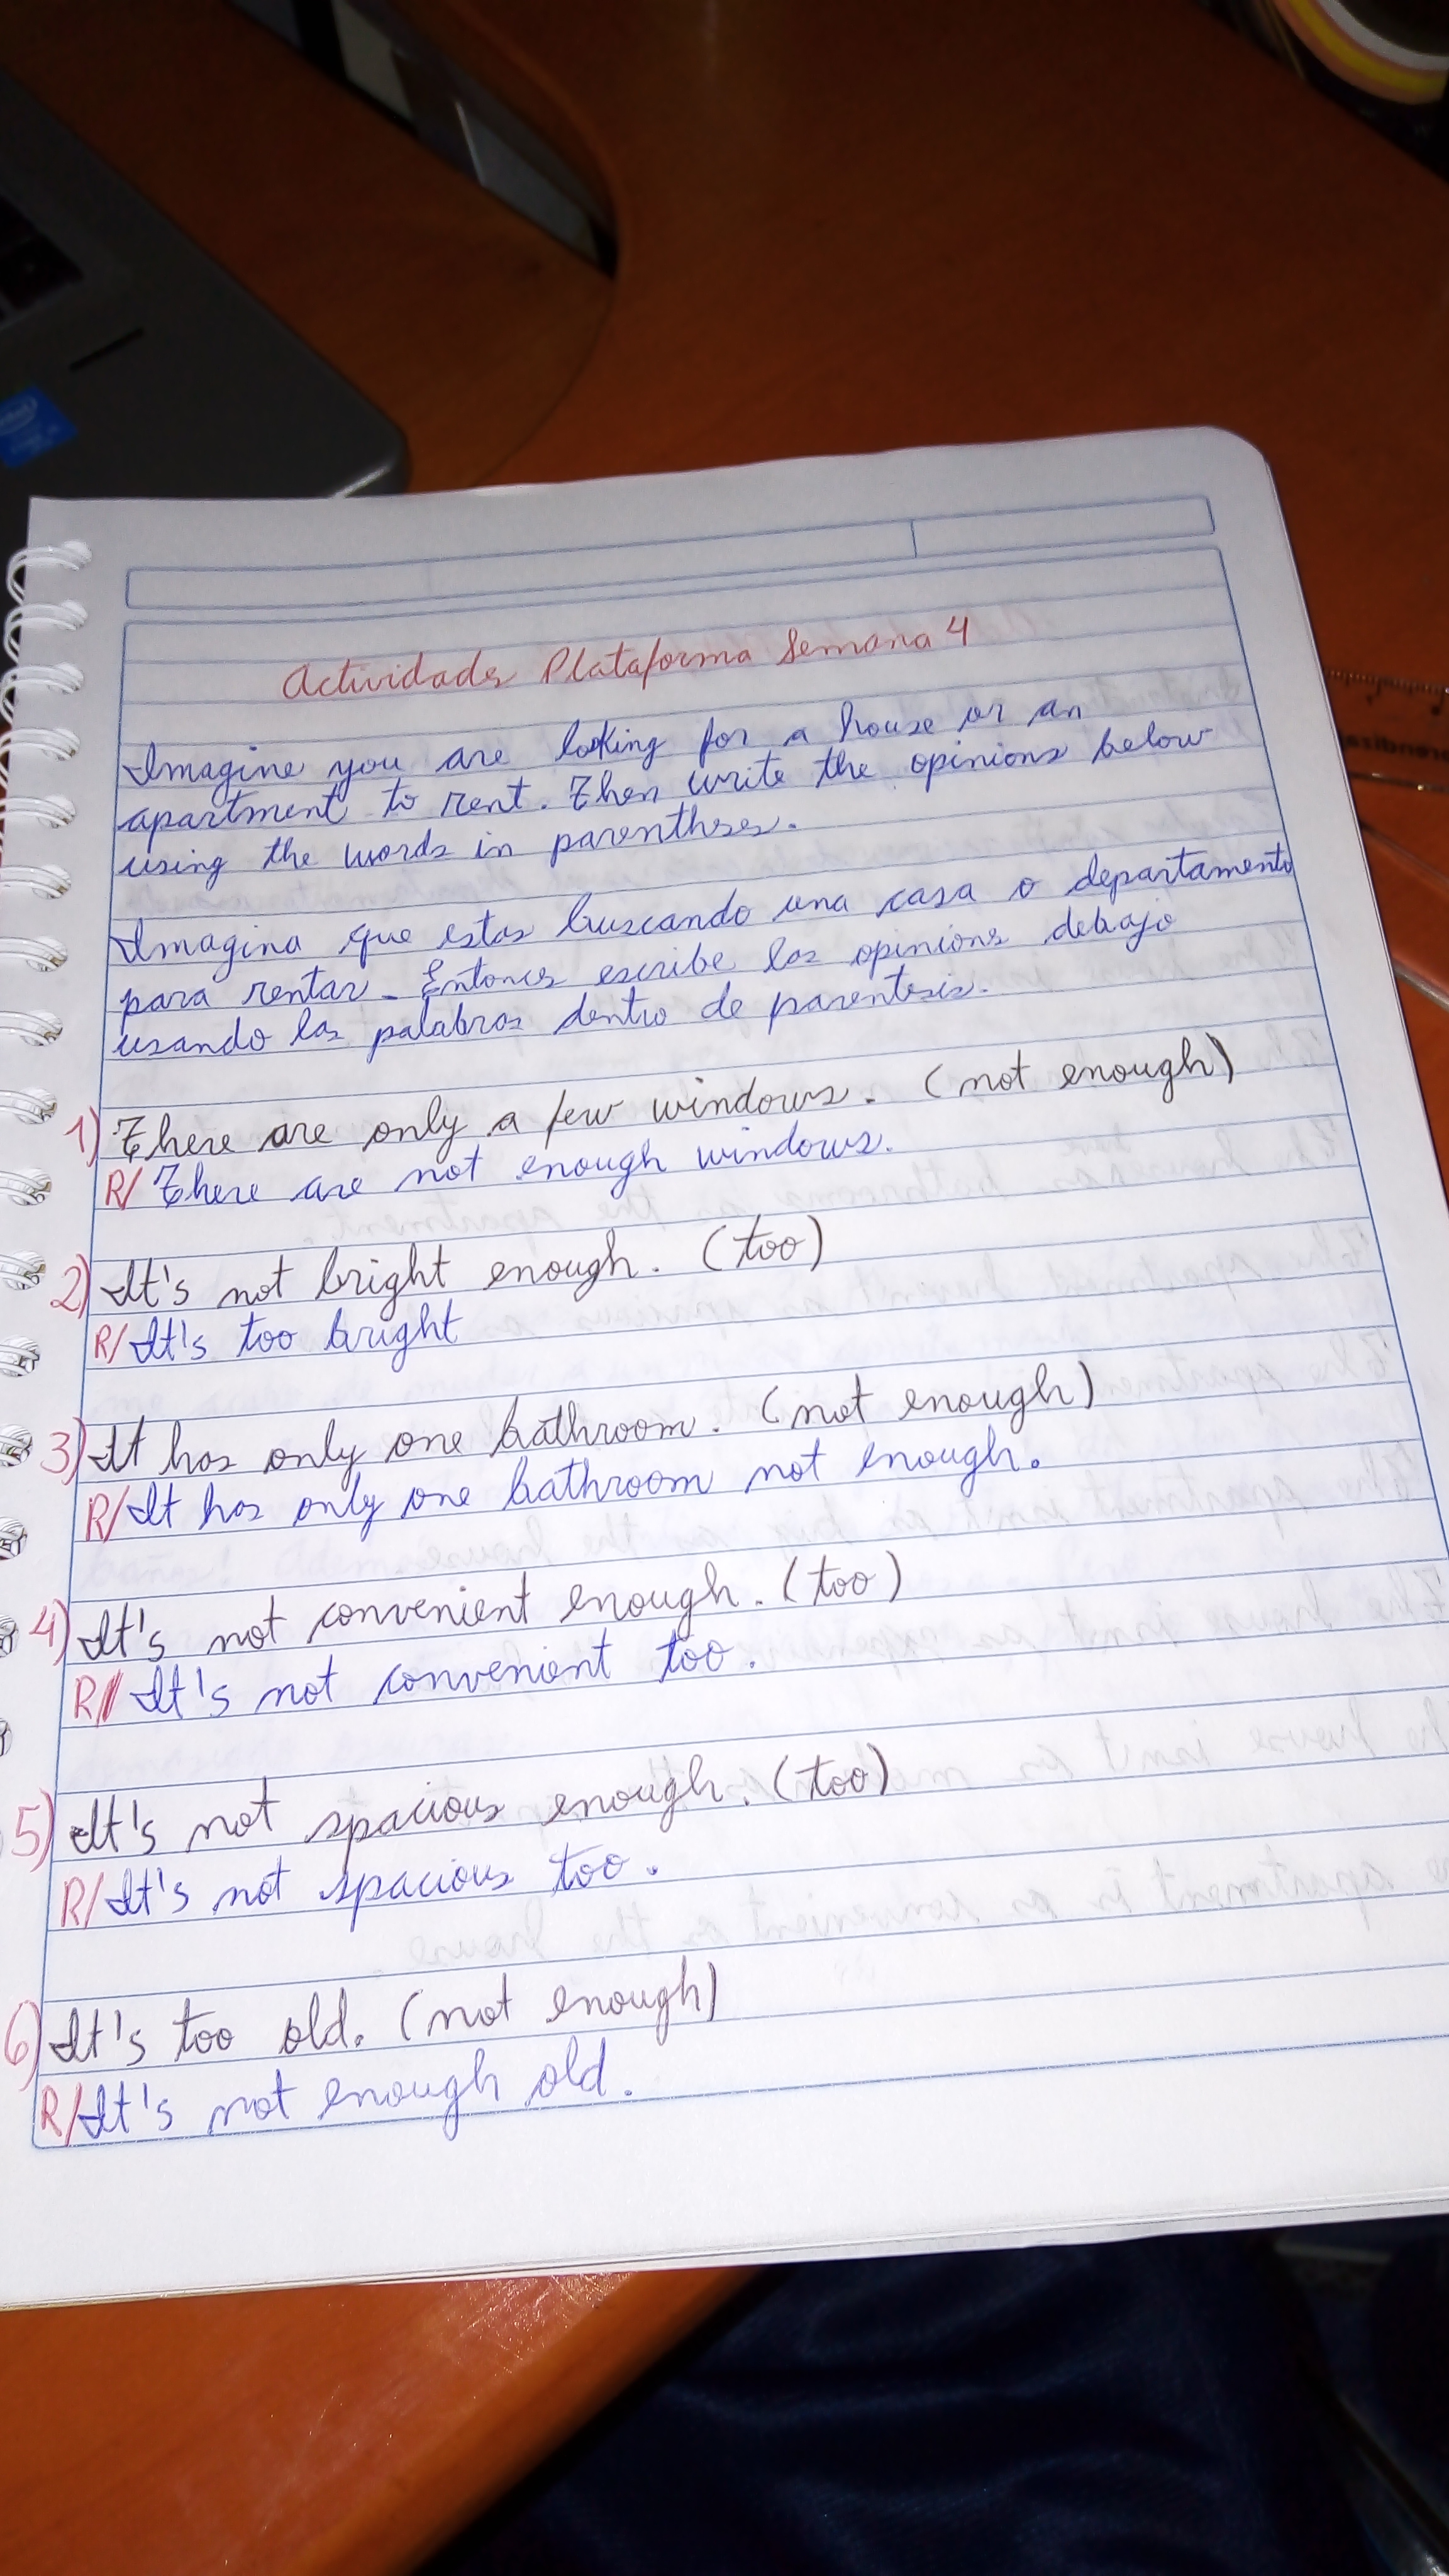 Actividades Plataforma Semana 4
Imagine you are looking for a house or an
apartment to rent. Then write the opinions below
using the words in parentheses.
Imagina que estas buscando una casa o departamento
para rentar. Entonces escribe las opinions debajo
usando las palabras dentro de parentesis.
1) There are only a few windows. (not enough)
R/ There are not enough windows.
2) It's not bright enough. (too)
R/ It's too bright
3) It has only one bathroom. (not enough)
R/ It has only one bathroom not enough.
4) It's not convenient enough. (too)
R/ It's not convenient too.
5) It's not spacious enough. (too)
R/ It's not spacious too.
6) It's too old. (not enough)
R/ It's not enough old.